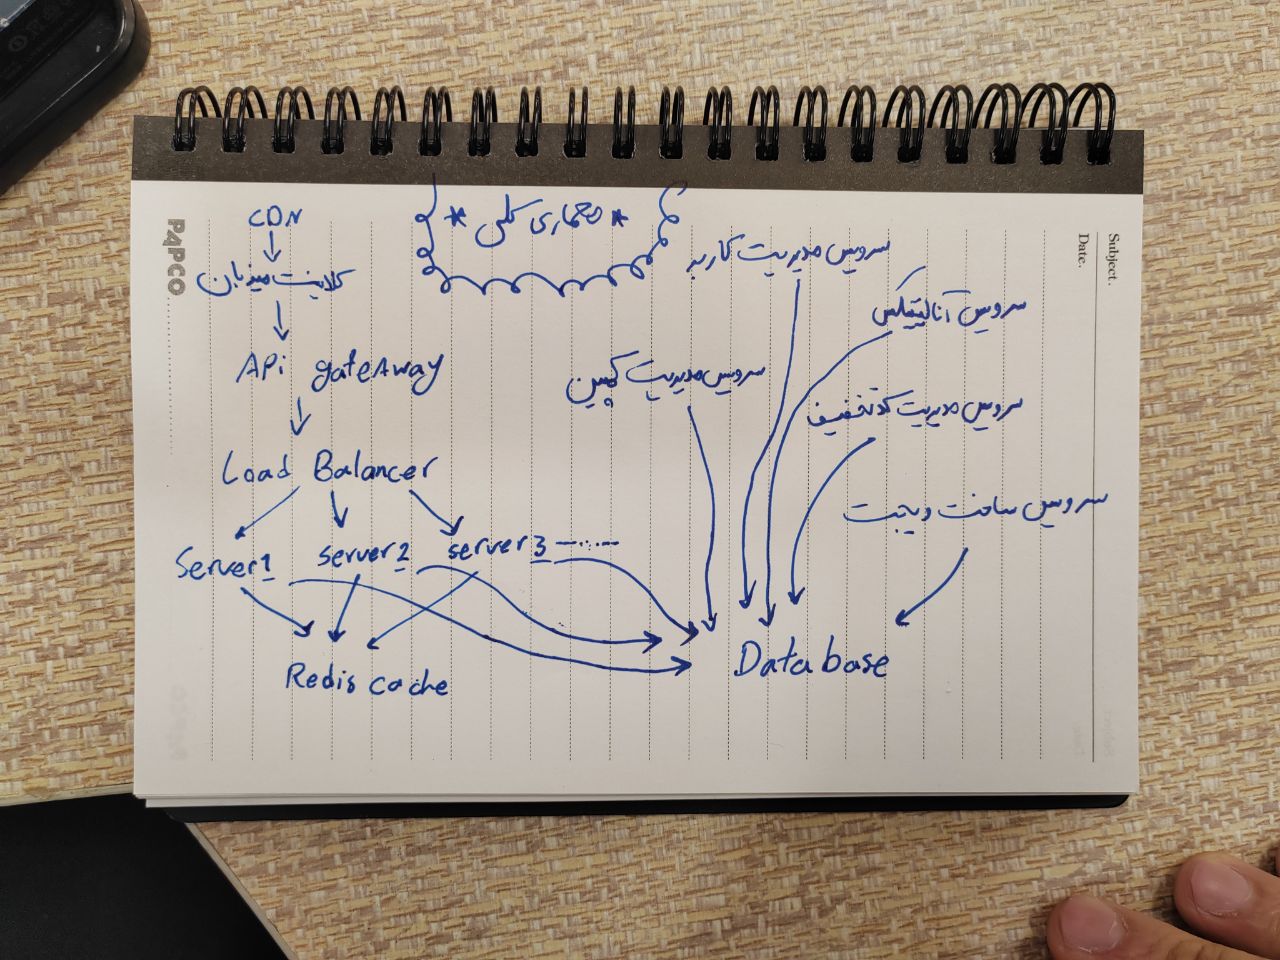 * معماری کلی *
CDN
کلاینت میزبان
API gateAway
Load Balancer
Server1 server2 server3
Redis cache
سرویس مدیریت کاربر
سرویس آنالیتیکس
سرویس مدیریت کمپین
سرویس مدیریت کد تخفیف
سرویس ساخت ویجت
Database
PAPCO
Subject.
Date.